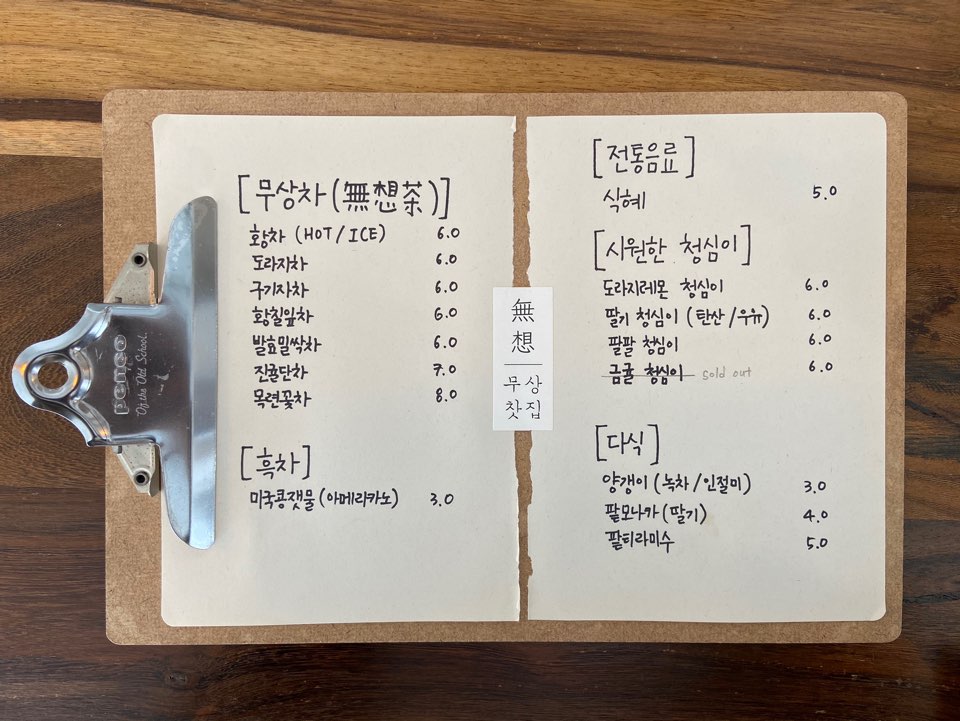 [무상차(無想茶)]
황차 (HOT/ICE) 6.0
도라지차 6.0
구기자차 6.0
황칠잎차 6.0
발효밀싹차 6.0
진귤단차 7.0
목련꽃차 8.0
[흑차]
미국콩잿물(아메리카노) 3.0
penco
Of the Old School.
無
想
무상
찻집
[전통음료]
식혜 5.0
[시원한 청심이]
도라지레몬 청심이 6.0
딸기 청심이 (탄산/우유) 6.0
팔팔 청심이 6.0
금귤 청심이 sold out 6.0
[다식]
양갱이 (녹차/인절미) 3.0
팥모나카(딸기) 4.0
팥티라미수 5.0